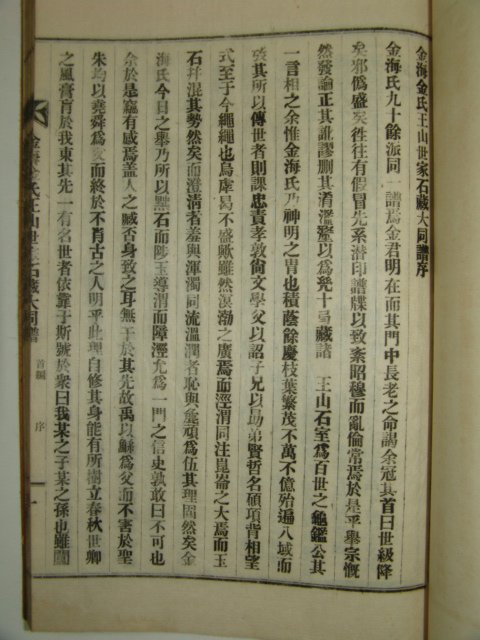 金海金氏王山世家石藏大同譜序
金海氏九十餘派同一譜焉金君明在而其門中長老之命謁余冠其首曰世級降
矣邪僞盛矣徃徃有假冒先系潛印譜牒以致紊昭穆而亂倫常焉於是乎擧宗慨
然發論正其訛謬刪其淆濫鏧以爲
十曷藏諸 王山石室爲百世之龜鑑公其
一言相之余惟金海氏乃神明之胄也積蔭餘慶枝葉繁茂不萬不億殆遍八域而
其所以傳世者則課忠責孝敦尙文學父以詔子兄以助弟賢哲名碩項背相望
式至于今繩繩也烏虖曷不盛歟雖然溟渤之廣焉而涇渭同注崑崙之大焉而玉
石幷混其勢然矣而澄淸者羞與渾濁同流溫潤者恥與麤頑爲伍其理固然矣金
海氏今日之擧乃所以黜石而陟玉導渭而障涇尤爲一門之信史孰敢曰不可也
余於是竊有感焉盖人之臧否身致之耳無干於其先故禹以鯀爲父而不害於聖
朱均以堯舜爲父而終於不肖古之人明乎此理自修其身能有所樹立春秋世卿
之風膏肓於我東其先一有名世者依靠于斯號於衆曰我某之子某之孫也雖闒
金海金氏王山世家石藏大同譜
首編
序
一